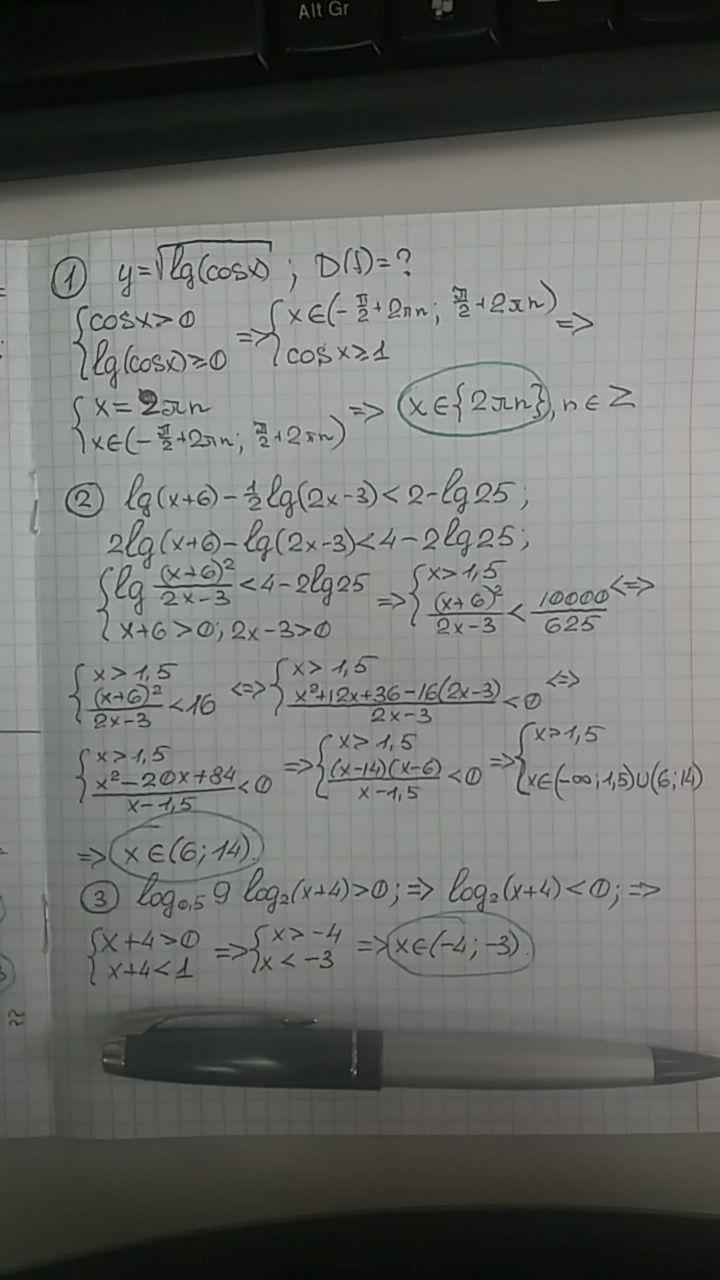 Alt Gr
① y=√lg(cosx) ; D(f)=?
{cosx>0 / lg(cosx)≥0 => {x∈(-π/2+2πn; π/2+2πn) / cosx≥1 =>
{x=2πn / x∈(-π/2+2πn; π/2+2πn) => x∈{2πn}, n∈Z
② lg(x+6)-½lg(2x-3)<2-lg25;
2lg(x+6)-lg(2x-3)<4-2lg25;
{lg (x+6)²/(2x-3) <4-2lg25 / x+6>0; 2x-3>0 => {x>1,5 / (x+6)²/(2x-3) < 10000/625 <=>
{x>1,5 / (x+6)²/(2x-3) <16 <=> {x>1,5 / (x²+12x+36-16(2x-3))/(2x-3) <0 <=>
{x>1,5 / (x²-20x+84)/(x-1,5) <0 => {x>1,5 / (x-14)(x-6)/(x-1,5) <0 => {x>1,5 / x∈(-∞;1,5)∪(6;14)
=> x∈(6;14).
③ log₀,₅9 log₂(x+4)>0; => log₂(x+4)<0; =>
{x+4>0 / x+4<1 => {x>-4 / x<-3 => x∈(-4;-3).